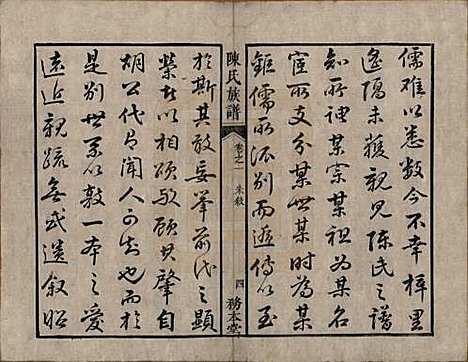 儒难以悉数今不幸梓里
遙隔未獲親見陈氏之譜
知所謂某宗某祖為某名
宦所支分某世某時為某
鉅儒所派别而遞傳以至
陳氏族譜
卷之一
朱敘
四
務本堂
於斯其敢妄攀前代之顯
榮在以相頌敬顧其肇自
胡公代有聞人可知也而
是别世系以敦一本之愛
遠近親疏無或遺叙昭